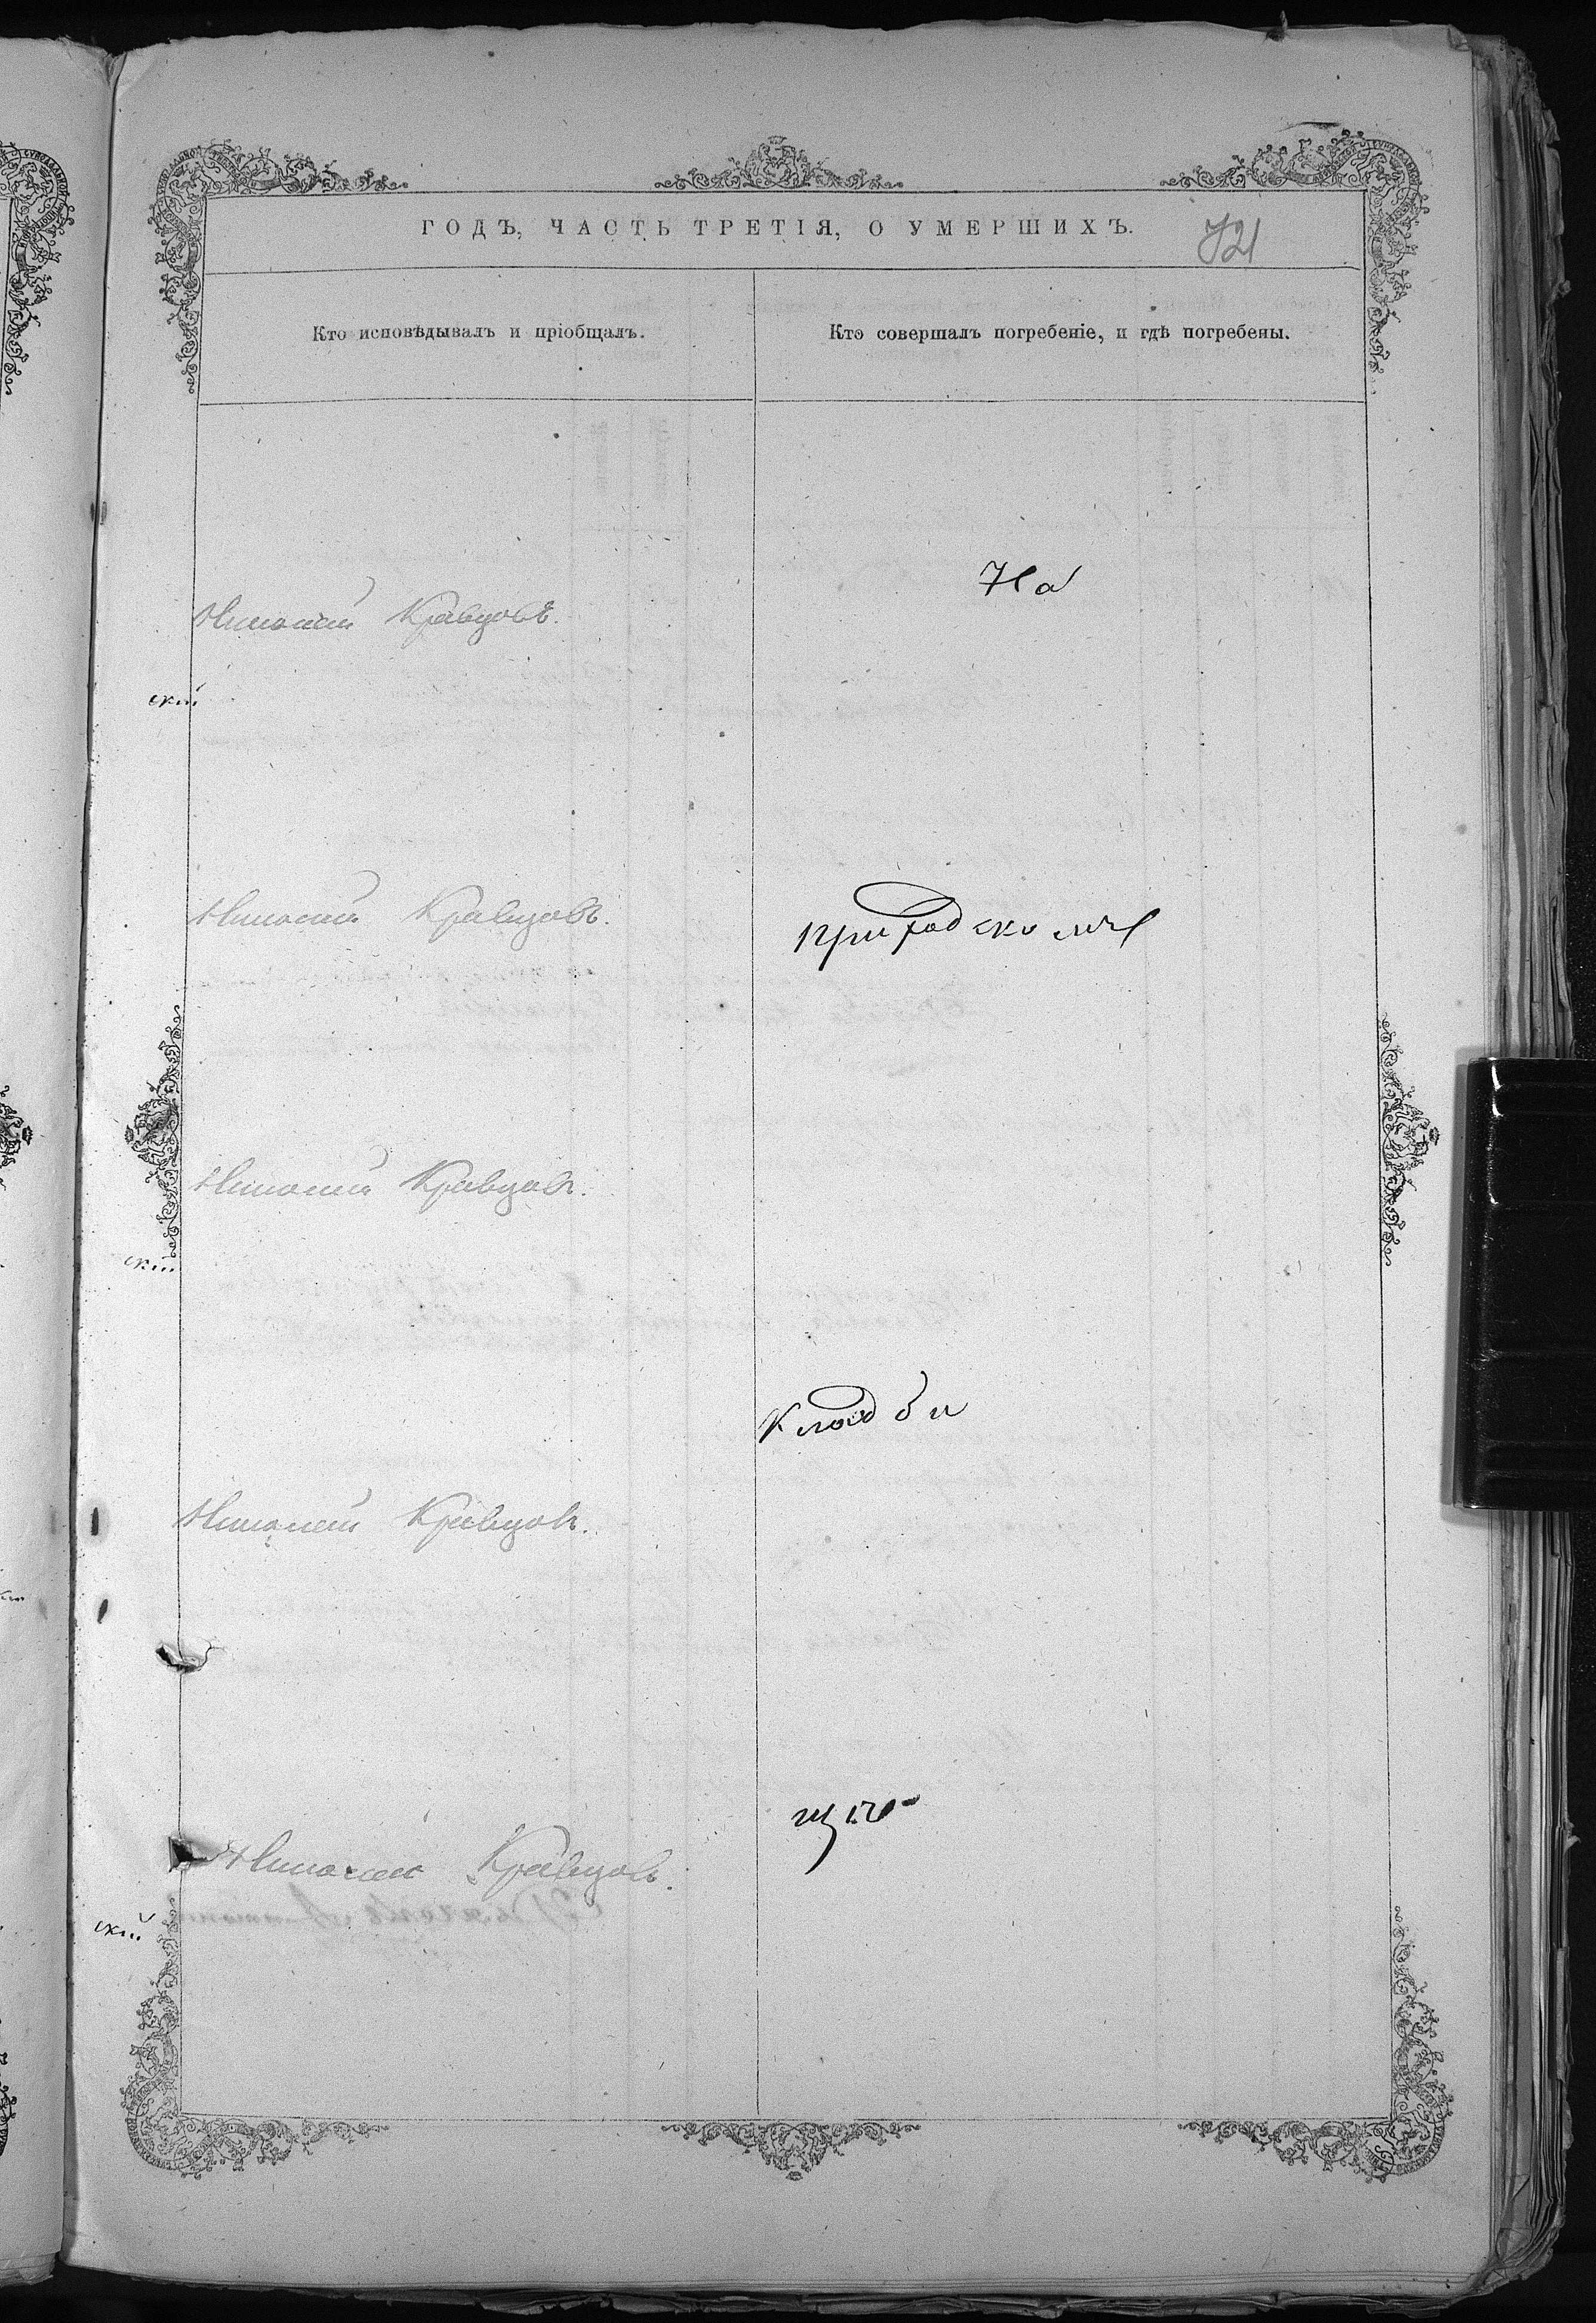 ГОДЪ, ЧАСТЬ ТРЕТІЯ, О УМЕРШИХЪ.
721
Кто исповѣдывалъ и пріобщалъ.
Кто совершалъ погребеніе, и гдѣ погребены.
На
Николай Кравцовъ.
скій
Николай Кравцовъ.
приходскомъ
Николай Кравцовъ.
скій
кладби
Николай Кравцовъ.
щѣ
Николай Кравцовъ.
скій